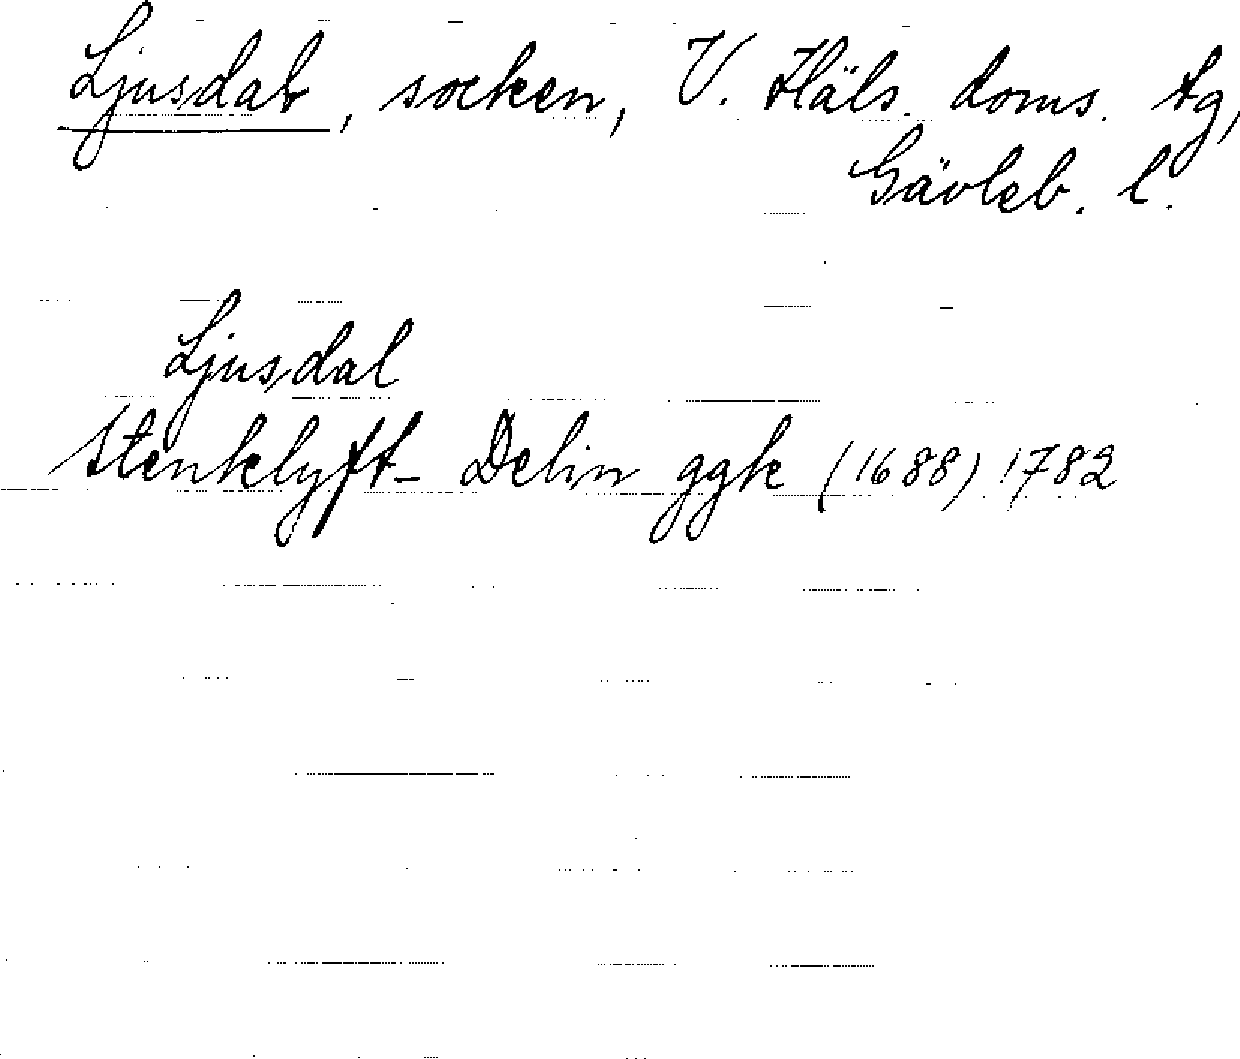 Ljusdals, socken, V. Häls. doms. tg,
Gävleb. l.
Ljusdal
Stenklyft- Delin ggk (1688) 1782